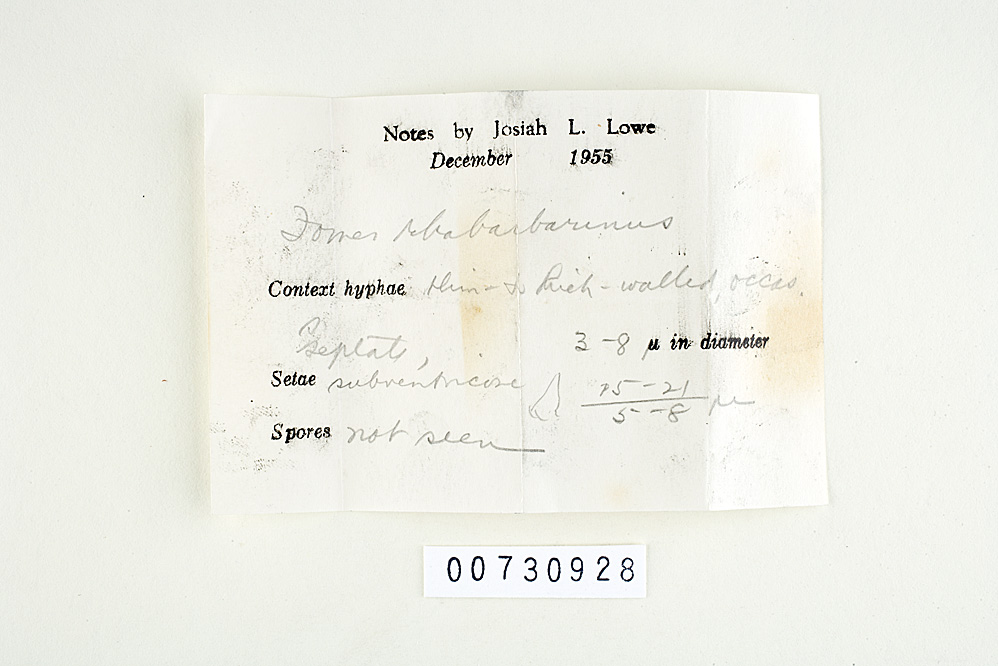 Notes by Josiah L. Lowe
December 1955
Fomes rhabarbarinus
Context hyphae thin- to thick-walled, occas.
septate, 3-8 µ in diameter
Setae subventricose 15-21
5-8 µ
Spores not seen
00730928